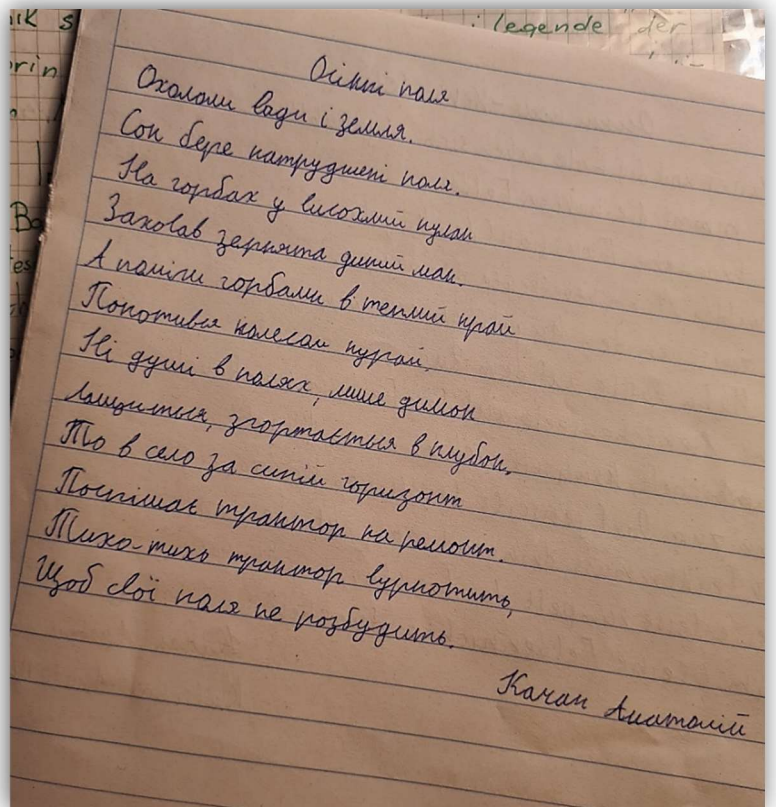 legende der
Осінні поля
Охололи води і земля.
Сон бере натруджені поля.
На горбах у висохлий кулак
Заховав зернята дикий мак.
А поміж горбами в теплий край
Покотився колесом курай.
Ні душі в полях, лише димок
Лащиться, згортається в клубок.
То в село за синій горизонт
Поспішає трактор на ремонт.
Тихо-тихо трактор вуркотить,
Щоб свої поля не розбудить.
Качан Анатолій